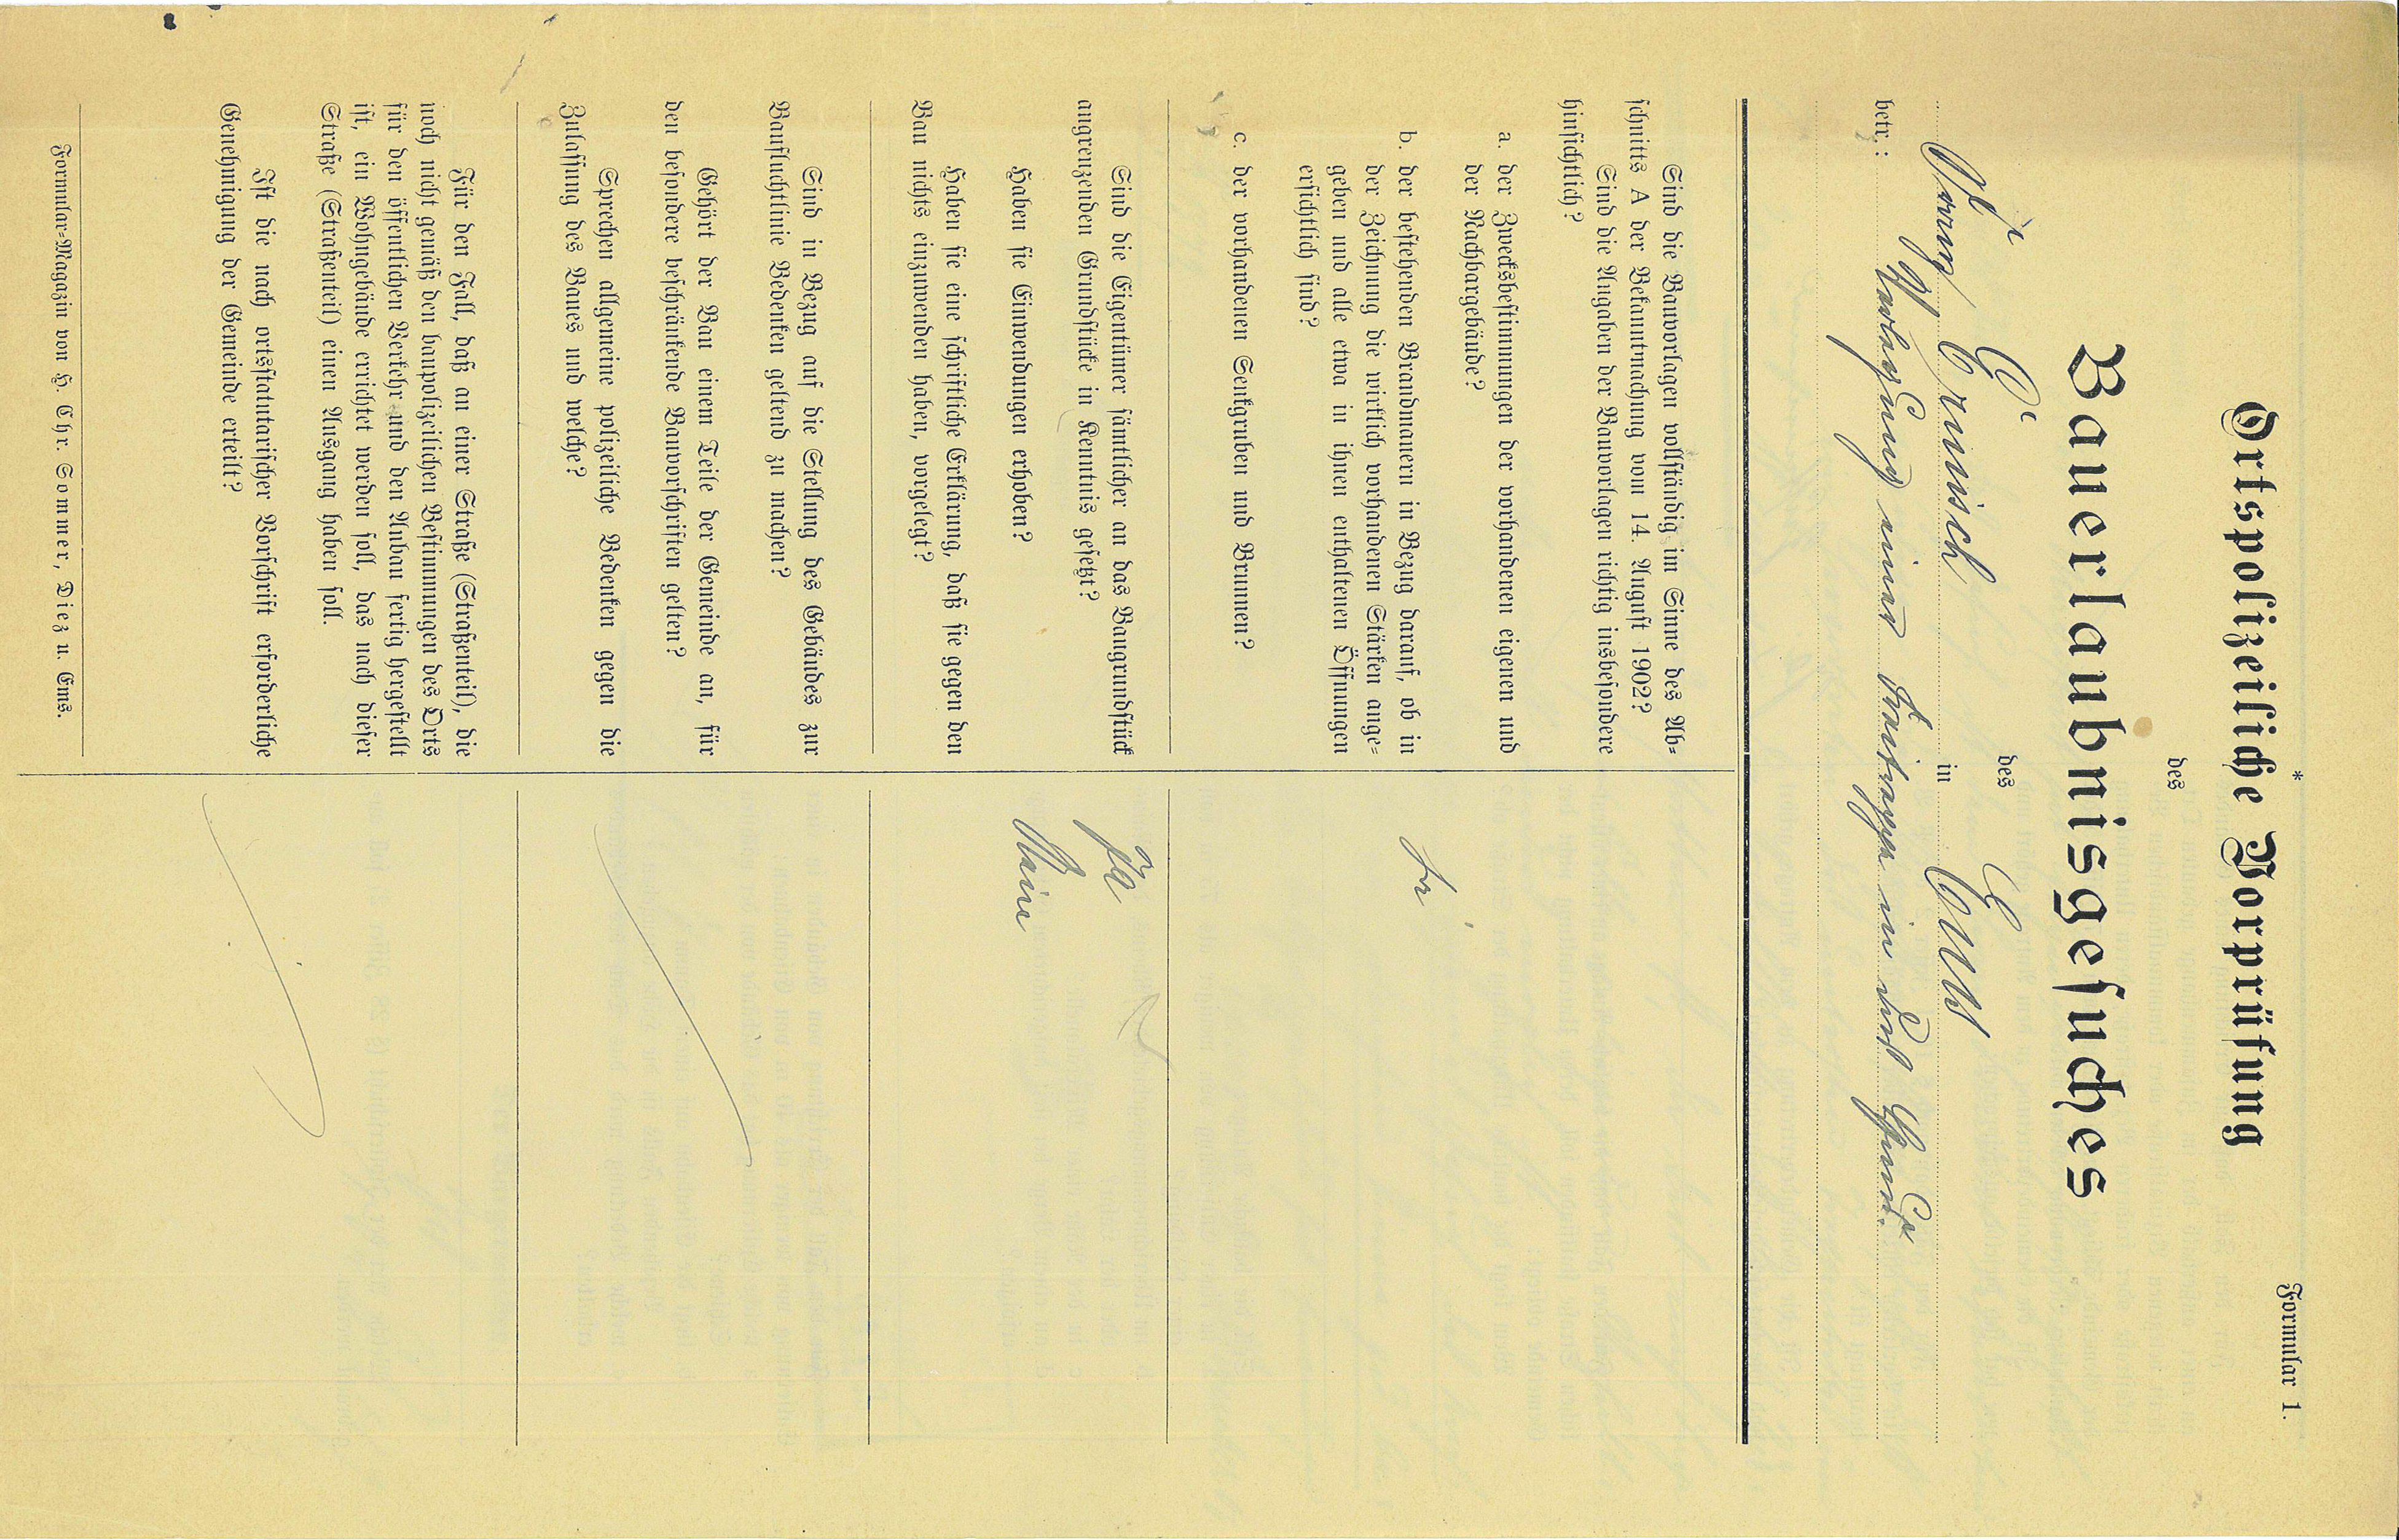 Formular 1.
*
Ortspolizeiliche Vorprüfung
des
Bauerlaubnisgesuches
des
Ernisch in Ems
betr.: Verlegung einer Treppe in das
Sind die Bauvorlagen vollständig im Sinne des Ab-
schnitts A der Bekanntmachung vom 14. August 1902?
Sind die Angaben der Bauvorlagen richtig insbesondere
hinsichtlich?
a. der Zwecksbestimmungen der vorhandenen eigenen und
der Nachbargebäude?
b. der bestehenden Brandmauern in Bezug darauf, ob in
der Zeichnung die wirklich vorhandenen Stärken ange-
geben und alle etwa in ihnen enthaltenen Öffnungen
ersichtlich sind?
c. der vorhandenen Senkgruben und Brunnen?
Sind die Eigentümer sämtlicher an das Baugrundstück
angrenzenden Grundstücke in Kenntnis gesetzt?
Ja
Haben sie Einwendungen erhoben?
Nein
Haben sie eine schriftliche Erklärung, daß sie gegen den
Bau nichts einzuwenden haben, vorgelegt?
Sind in Bezug auf die Stellung des Gebäudes zur
Baufluchtlinie Bedenken geltend zu machen?
Gehört der Bau einem Teile der Gemeinde an, für
den besondere beschränkende Bauvorschriften gelten?
Sprechen allgemeine polizeiliche Bedenken gegen die
Zulassung des Baues und welche?
Für den Fall, daß an einer Straße (Straßenteil), die
noch nicht gemäß den baupolizeilichen Bestimmungen des Orts
für den öffentlichen Verkehr und den Anbau fertig hergestellt
ist, ein Wohngebäude errichtet werden soll, das nach dieser
Straße (Straßenteil) einen Ausgang haben soll.
Ist die nach ortsstatutarischer Vorschrift erforderliche
Genehmigung der Gemeinde erteilt?
Formular-Magazin von H. Chr. Sommer, Diez u. Ems.